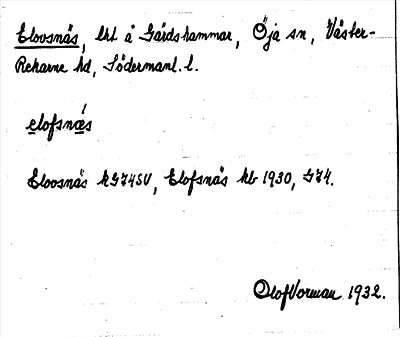 Elovsnäs, lht å Gärdshammar, Öja sn, Väster-
Rekarne hd, Södermanl. l.
elofsnǽs
Elovsnäs kG74SV, Elofsnäs kb 1930, J74.
Olof Vorman 1932.